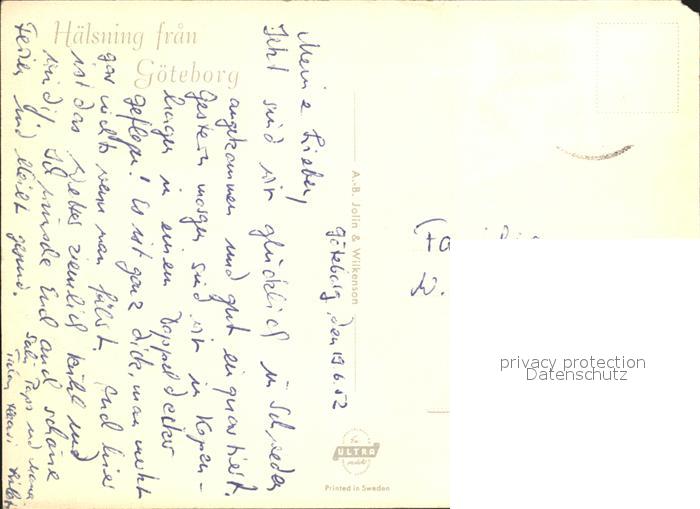 Hälsning från
Göteborg
Göteborg, den 19.6.52
Meine Lieben,
Jetzt sind wir glücklich in Schweden
angekommen und gut einquartiert.
Gestern morgen sind wir in Kopen-
hagen in einem Doppeldecker
geflogen! Es ist ganz dick, man merkt
gar nichts wenn man fährt. Und hier
ist das Wetter ziemlich kühl und
windig. Ich wünsche Euch auch schöne
Ferien und bleibt gesund.
Papi und Mama
A.-B. Jolin & Wilkenson
Familie
W.
privacy protection
Datenschutz
ULTRA
Printed in Sweden